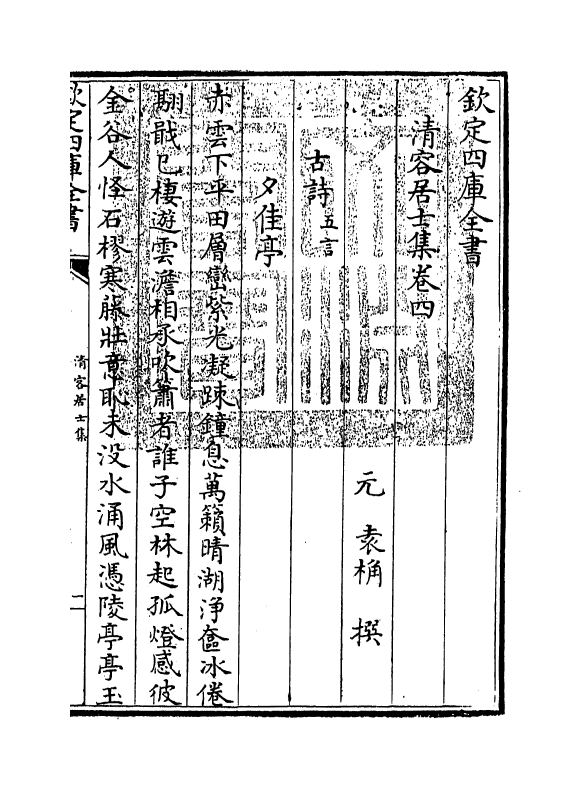 欽定四庫全書
清容居士集卷四
元 袁桷 撰
古詩五言
夕佳亭
赤雲下平田層巒紫光凝踈鐘息萬籟晴湖淨奩冰倦
翮戢已棲遊雲澹相承吹簫者誰子空林起孤燈感彼
金谷人怪石樛寒藤壯意恥未没水涌風憑陵亭亭玉
欽定四庫全書
清容居士集